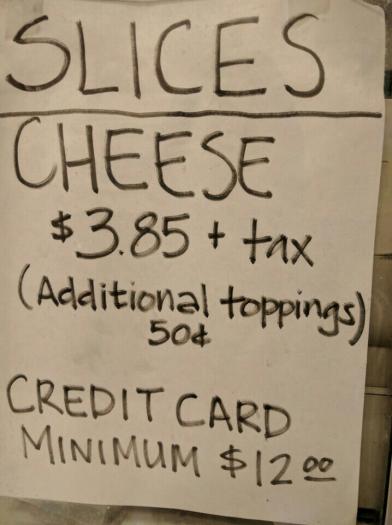 SLICES
CHEESE
$3.85 + tax
(Additional toppings)
50¢
CREDIT CARD
MINIMUM $12.00